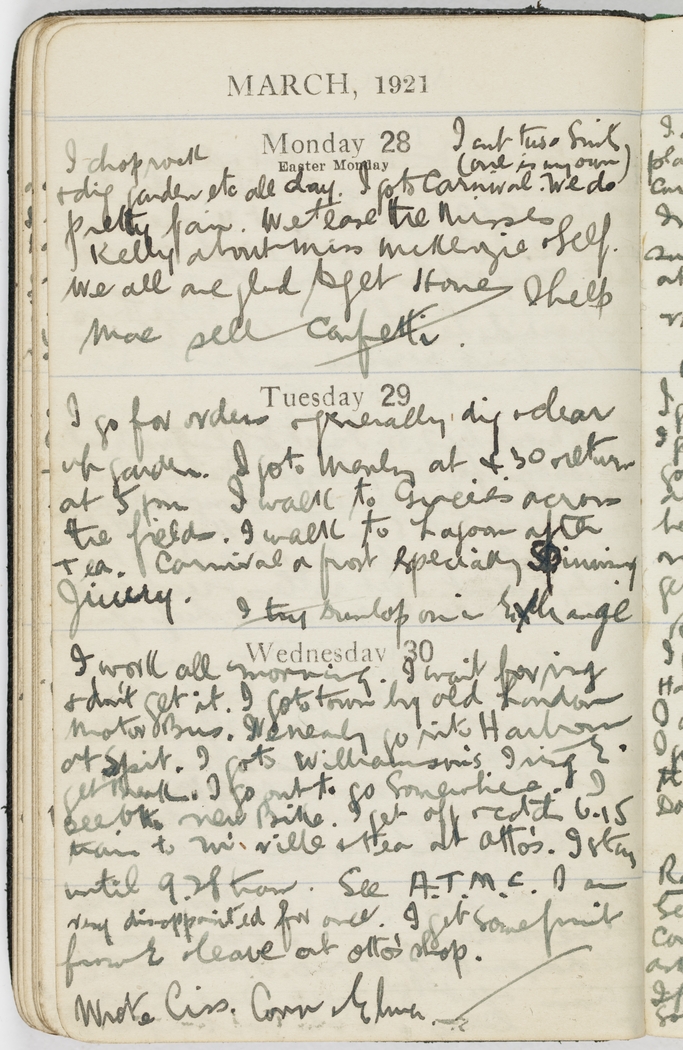 MARCH, 1921
Monday 28
Easter Monday
I cut two Suits
(one is my own)
I chop wood
+ dig garden etc all day. I go to Carnival. We do
pretty fair. We tease the Misses
Kelly about Miss McKenzie + Self.
We all are glad to get Home I help
Mae sell Confetti.
Tuesday 29
I go for orders + generally dig + clear
up garden. I go to Manly at 4 30 + return
at 5 pm I walk to across
the fields. I walk to Lagoon after
Tea. Carnival a frost Specially

I try Dunlop on in Exchange
Wednesday 30
I work all morning. I wait for ring
+ don't get it. I go to town by old London
Motor Bus. We nearly go into Harbour
at Spit. I go to Williamson's I ring E.
get . I go out to go Somewhere. I
see new Bike. I get off + catch 6.15
train to M'ville + tea at Otto's. I stay
until 9.28 tram. See A.T.M.C. I am
very disappointed for once. I get some fruit
from E + leave at Otto's shop.
Wrote Ciss. Corn + Elma.